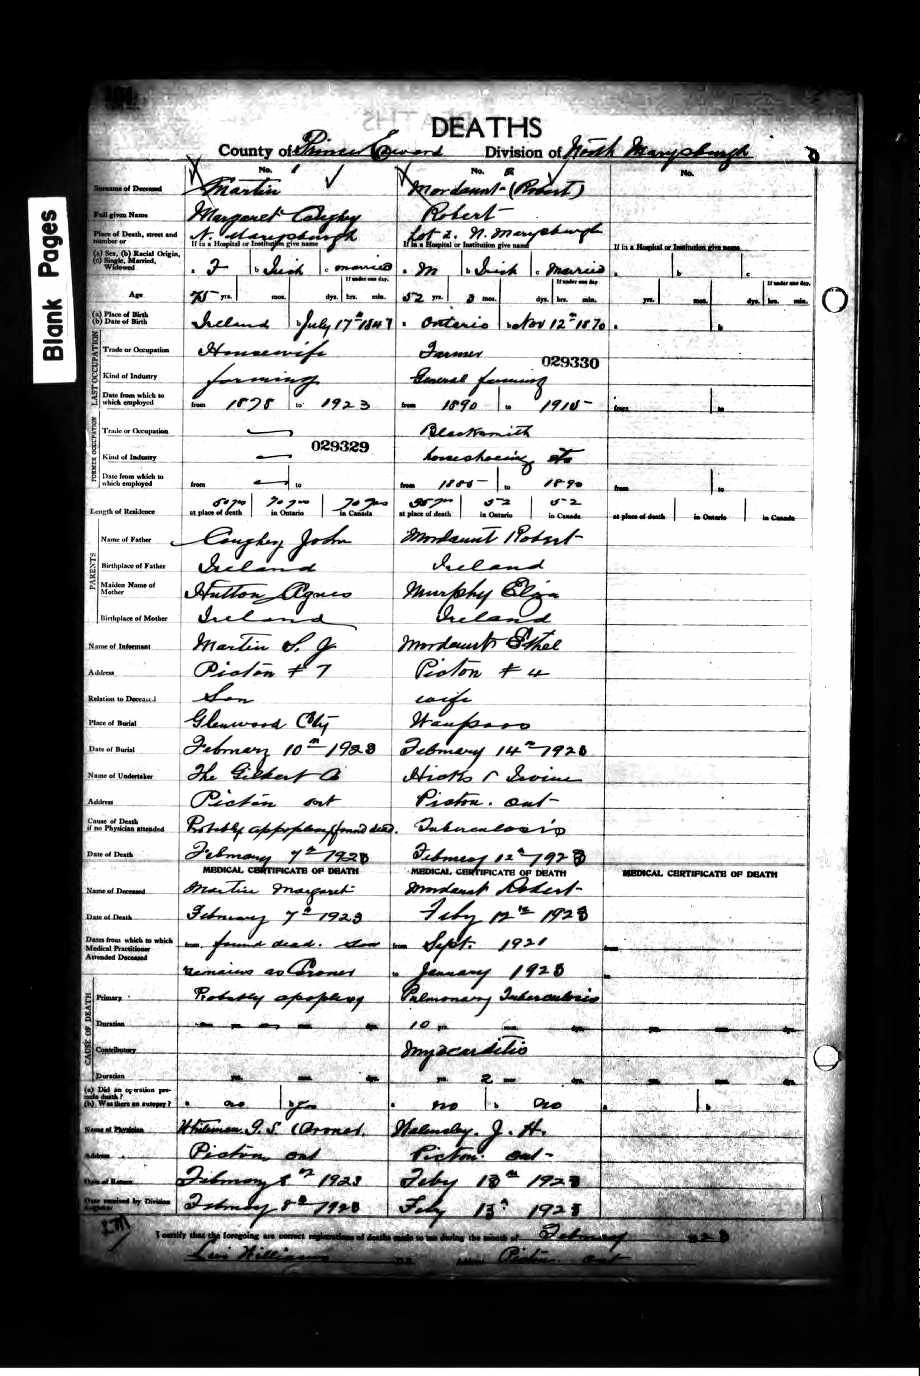 Blank Pages
DEATHS
County of Prince Edward Division of North Marysburgh
No. 1 No. 2 No.
Surname of Deceased Martin Mordaunt (Robert)
Full given Name Margaret Caughey Robert
Place of Death, street and number or N. Marysburgh Lot 2. N. Marysburgh
If in a Hospital or Institution give name If in a Hospital or Institution give name If in a Hospital or Institution give name
(a) Sex, (b) Racial Origin, (c) Single, Married, Widowed a F b Irish c married a M b Irish c Married a b c
If under one day. If under one day. If under one day.
Age 75 yrs. mos. dys. hrs. min. 52 yrs. 3 mos. dys. hrs. min. yrs. mos. dys. hrs. min.
(a) Place of Birth (b) Date of Birth Ireland b July 17th 1847 a Ontario b Nov 12th 1870 a b
LAST OCCUPATION
Trade or Occupation Housewife Farmer
029330
Kind of Industry farming General farming
Date from which to which employed from 1878 to 1923 from 1890 to 1915 from to
FORMER OCCUPATION
Trade or Occupation Blacksmith
029329
Kind of Industry horseshoeing etc
Date from which to which employed from to from 1885 to 1890 from to
Length of Residence 50 yrs 70 yrs 70 yrs 35 yrs 52 52
at place of death in Ontario in Canada at place of death in Ontario in Canada at place of death in Ontario in Canada
PARENTS
Name of Father Caughey John Mordaunt Robert
Birthplace of Father Ireland Ireland
Maiden Name of Mother Hutton Agnes Murphy Eliza
Birthplace of Mother Ireland Ireland
Name of Informant Martin S. J. Mordaunt Ethel
Address Picton # 7 Picton # 4
Relation to Deceased Son wife
Place of Burial Glenwood Cty Waupoos
Date of Burial February 10th 1923 February 14th 1923
Name of Undertaker The Gilbert Co Hicks & Irvine
Address Picton ont Picton. ont
Cause of Death if no Physician attended Probably appoplexy (found dead. Tuberculosis
Date of Death February 7th 1923 February 12th 1923
MEDICAL CERTIFICATE OF DEATH MEDICAL CERTIFICATE OF DEATH MEDICAL CERTIFICATE OF DEATH
Name of Deceased Martin Margaret Mordaunt Robert
Date of Death February 7th 1923 Feby 12th 1923
Dates from which to which Medical Practitioner Attended Deceased from found dead. Saw from Sept. 1921 from
remains as Coroner to January 1923 to
CAUSE OF DEATH
Primary Probably apoplexy Pulmonary Tuberculosis
Duration yrs. mos. dys. 10 yrs. mos. dys. yrs. mos. dys.
Contributory Myocarditis
Duration yrs. mos. dys. yrs. 2 mos. dys. yrs. mos. dys.
(a) Did an operation precede death? (b) Was there an autopsy? a no b yes a no b no a b
Name of Physician Whiteman G. S. Coroner. Walmsley. J. H.
Address Picton, ont Picton. ont
Date of Return February 8th 1923 Feby 13th 1923
Date received by Division Registrar February 8th 1923 Feby 13th 1923
I certify that the foregoing are correct registrations of deaths made to me during the month of February 1923
Williams D.R. Address Picton ont